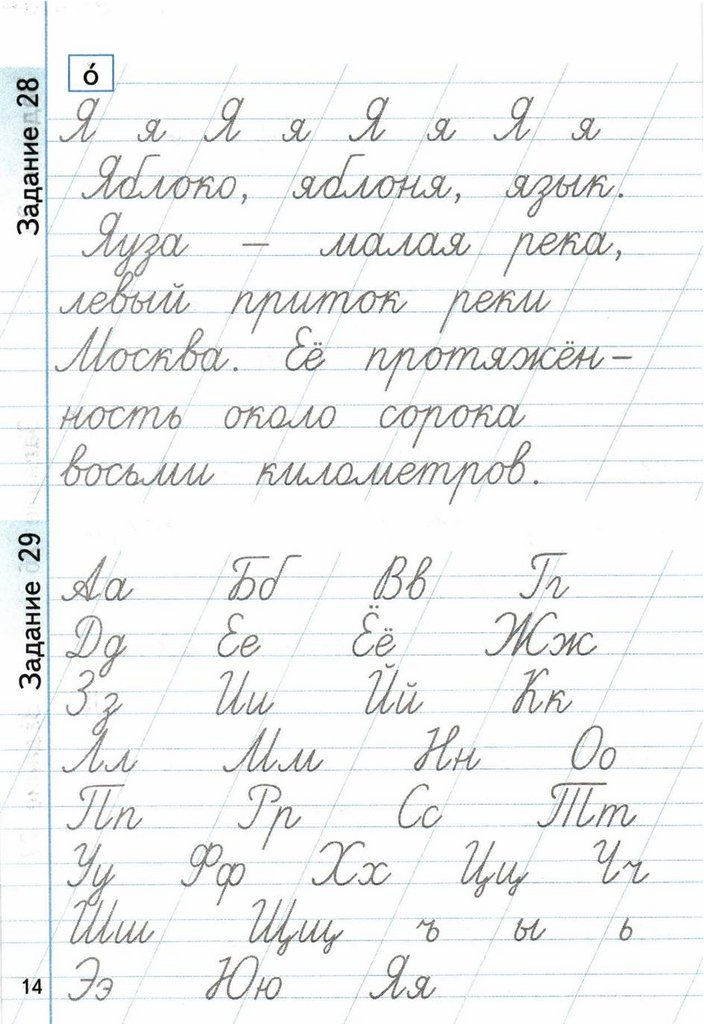 Задание 28
ó
Я я Я я Я я Я я
Яблоко, яблоня, язык.
Яуза – малая река,
левый приток реки
Москва. Её протяжён-
ность около сорока
восьми километров.
Задание 29
Аа Бб Вв Гг
Дд Ее Ёё Жж
Зз Ии Йй Кк
Лл Мм Нн Оо
Пп Рр Сс Тт
Уу Фф Хх Цц Чч
Шш Щщ ъ ы ь
Ээ Юю Яя
14